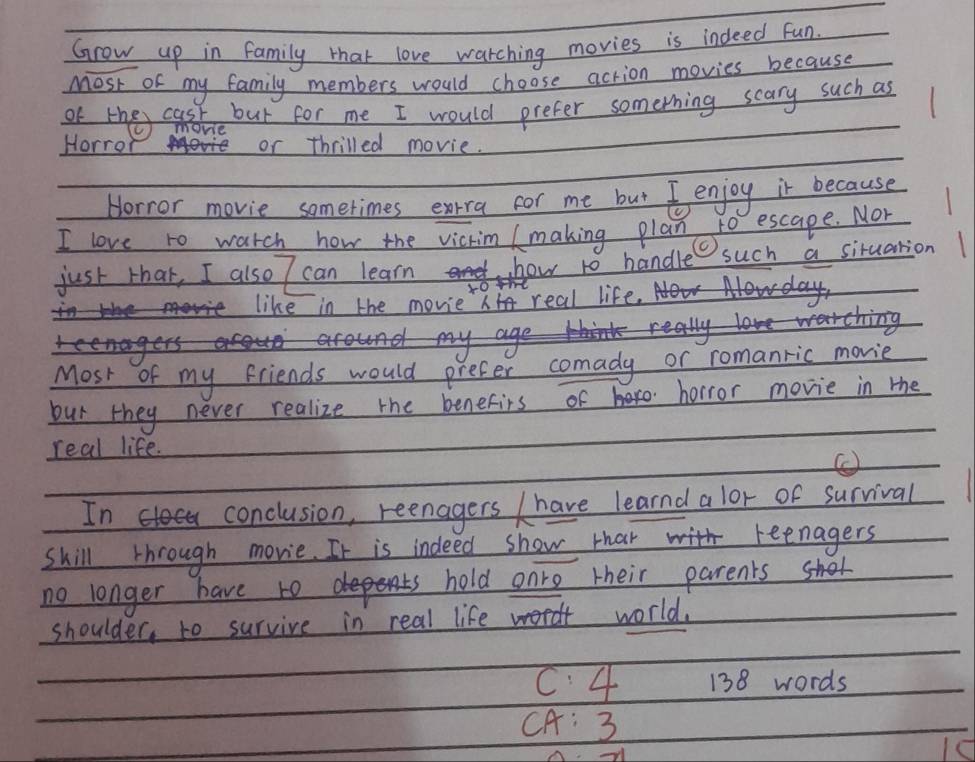 Grow up in family that love watching movies is indeed fun.
Most of my family members would choose action movies because
of the cast but for me I would prefer something scary such as
movie
Horror Movie or thrilled movie.
Horror movie sometimes extra for me but I enjoy it because
I love to watch how the victim making plan to escape. Not
just that, I also can learn and how to handle such a situation
to the
in the movie like in the movie in real life. Now Nowday,
teenagers aroun around my age think really love watching
Most of my friends would prefer comady or romantic movie
but they never realize the benefits of horo. horror movie in the
real life.
In conclusion, teenagers have learnd a lot of survival
skill through movie. It is indeed show that with teenagers
no longer have to depents hold onto their parents shol
shoulder, to survive in real life wordt world.
C: 4 138 words
CA: 3